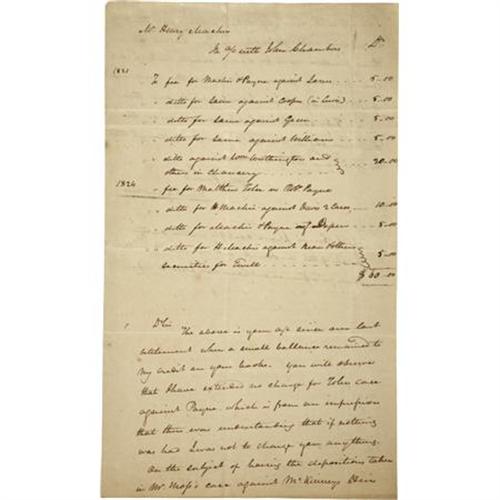 Mr Henry Machir
In a/c with John Chambers Dr
1821
To fee for Machir & Payne against Same . . . 5.00
" ditto for Same against Cooper (in Error) . . 5.00
" ditto for Same against Green . . . 5.00
" ditto for Same against Williams . . . 5.00
" ditto against Wm Worthington and
others in Chancery . . . 20.00
1824
" fee for Matthew Tolen vs Payne
" ditto for H Machir against Davis & . . . 10.00
" ditto for Machir & Payne . . . 5.00
" ditto for H. Machir against others
Securities for . . . 5.00
$ 60.00
Dr Sir The above is your a/c since our last
settlement when a small ballance remained to
my credit on your books. you will observe
that I have extended no charge for Tolen case
against Payne which is from an impression
that there was understanding that if nothing
was had I was not to charge you anything.
On the subject of having the depositions taken
in Mr Moss's case against McKinney Dear